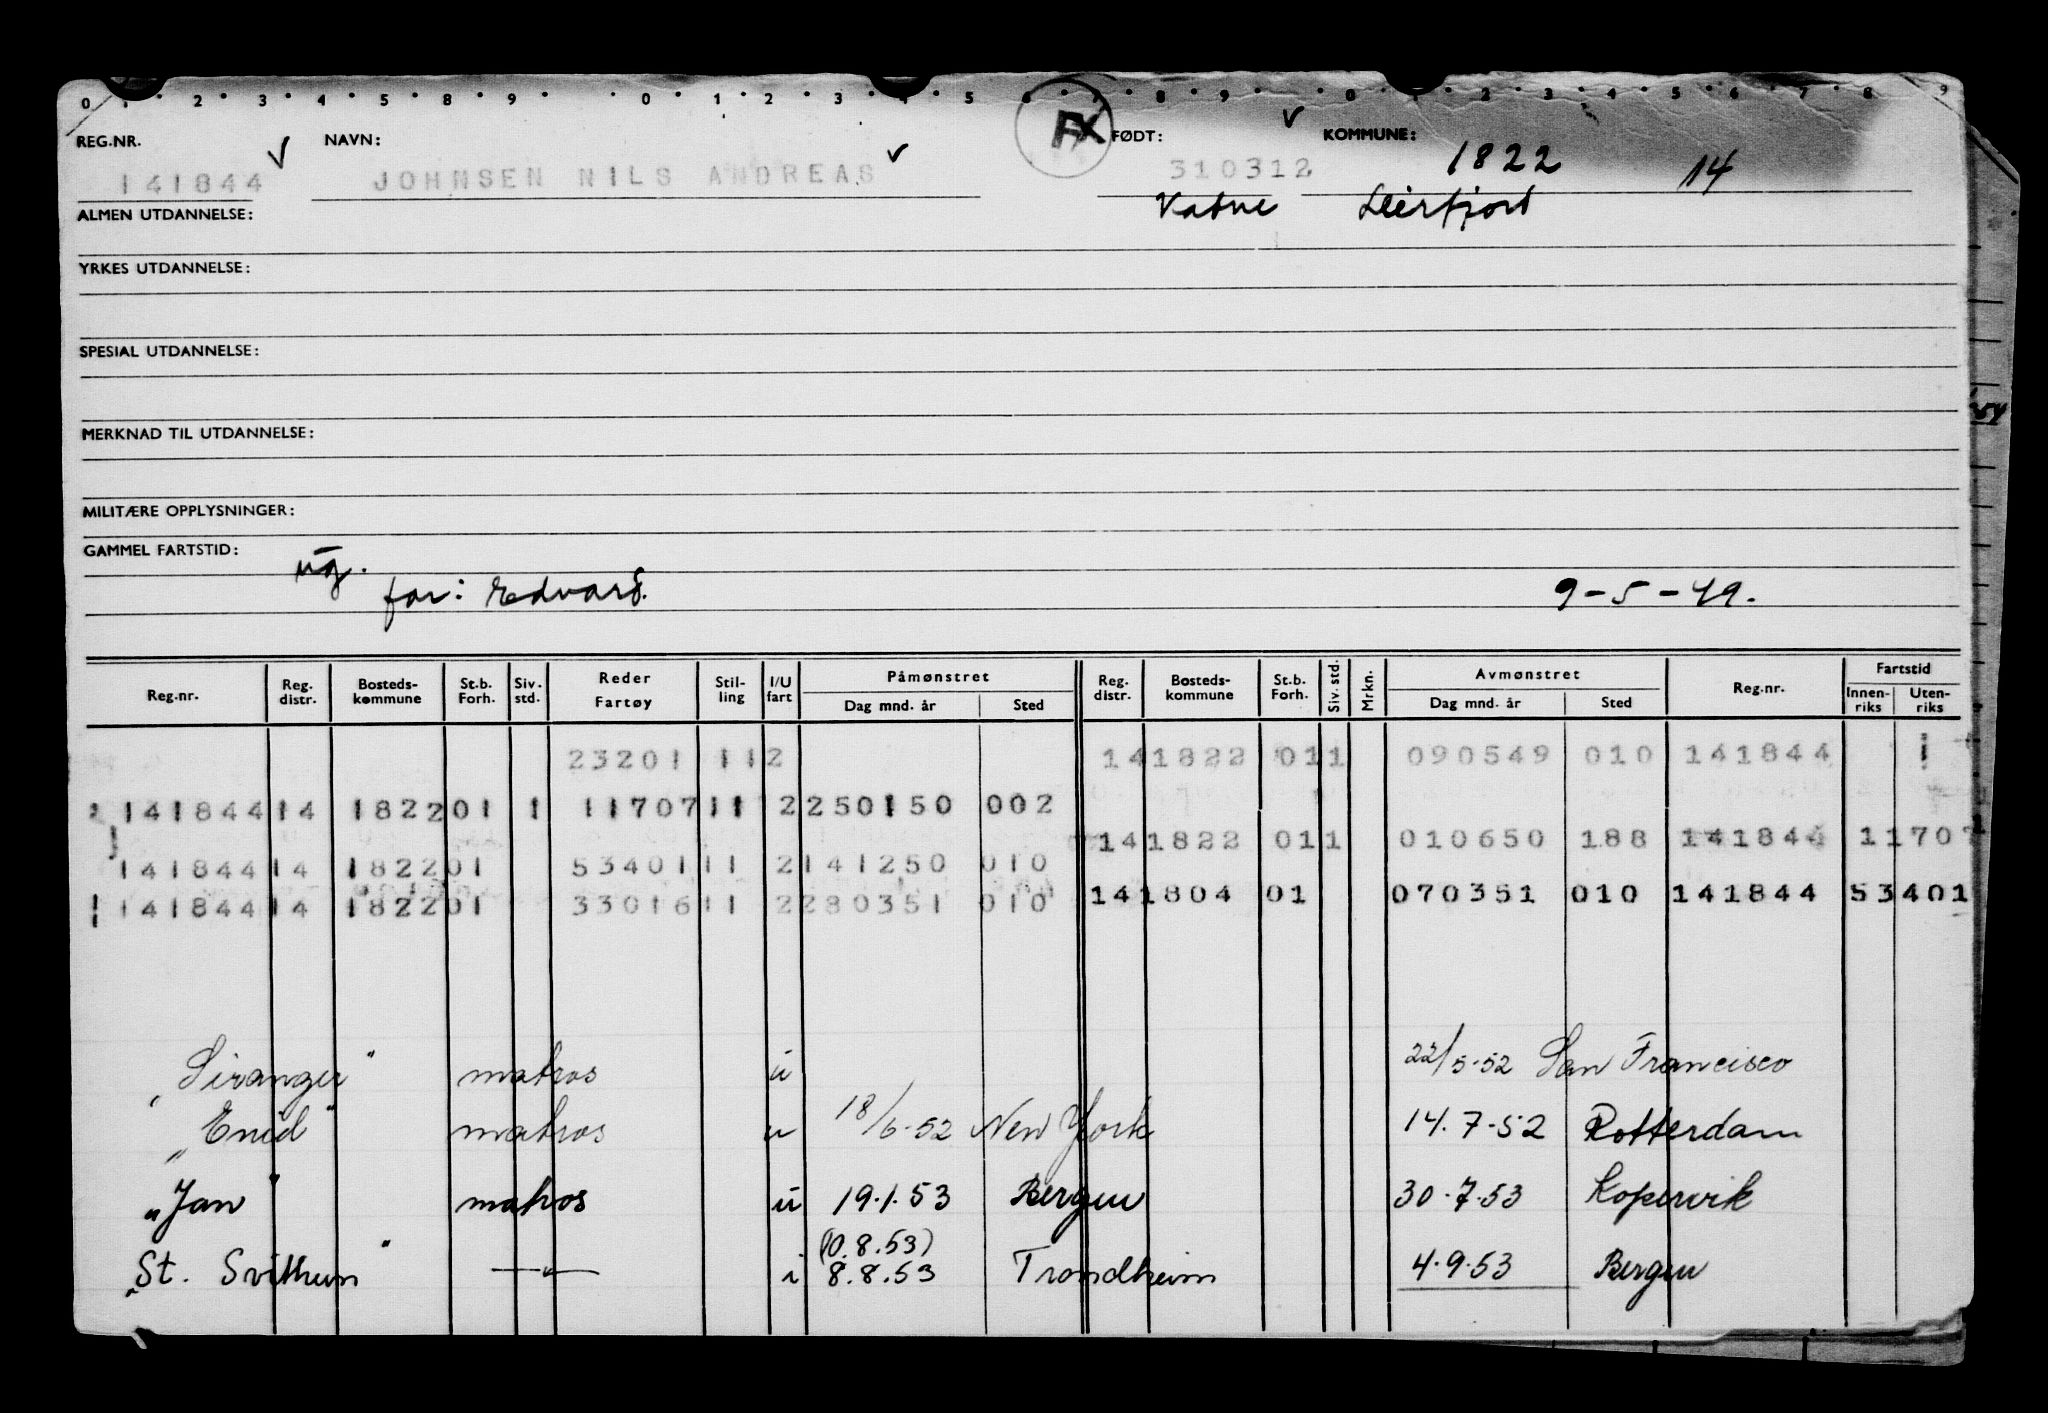 0 1 2 3 4 5 8 9 0 1 2 3 4 5 6 7 8 9 0 1 2 3 4 5 6 7 8 9
REG.NR. NAVN: FX FØDT: KOMMUNE:
141844 JOHNSEN NILS ANDREAS 310312 1822 14
ALMEN UTDANNELSE: Leirfjord
YRKES UTDANNELSE:
SPESIAL UTDANNELSE:
MERKNAD TIL UTDANNELSE:
MILITÆRE OPPLYSNINGER:
GAMMEL FARTSTID:
far: Edvard. 9-5-49.
Reg.nr. Reg. distr. Bosteds-kommune St.b. Forh. Siv. std. Reder Fartøy Stil-ling I/U fart Påmønstret Dag mnd. år Sted Reg. distr. Bosteds-kommune St.b. Forh. Siv. std. Mrkn. Avmønstret Dag mnd. år Sted Reg.nr. Fartstid Innen-riks Uten-riks
23201 11 2 14 1822 01 1 090549 010 141844 1
141844 14 1822 01 1 11707 11 2 250150 002
14 1822 01 1 010650 188 141844 11707
141844 14 1822 01 53401 11 2 141250 010
14 1804 01 070351 010 141844 53401
141844 14 1822 01 33016 11 2 280351 010
"Siranger" matros u 22/5-52 San Francisco
"Enid" matros u 18/6-52 New York 14.7-52 Rotterdam
"Jan" matros u 19.1.53 Bergen 30.7.53 Kopervik
(10.8.53)
"St. Svithun" —"— i 8.8.53 Trondheim 4.9.53 Bergen